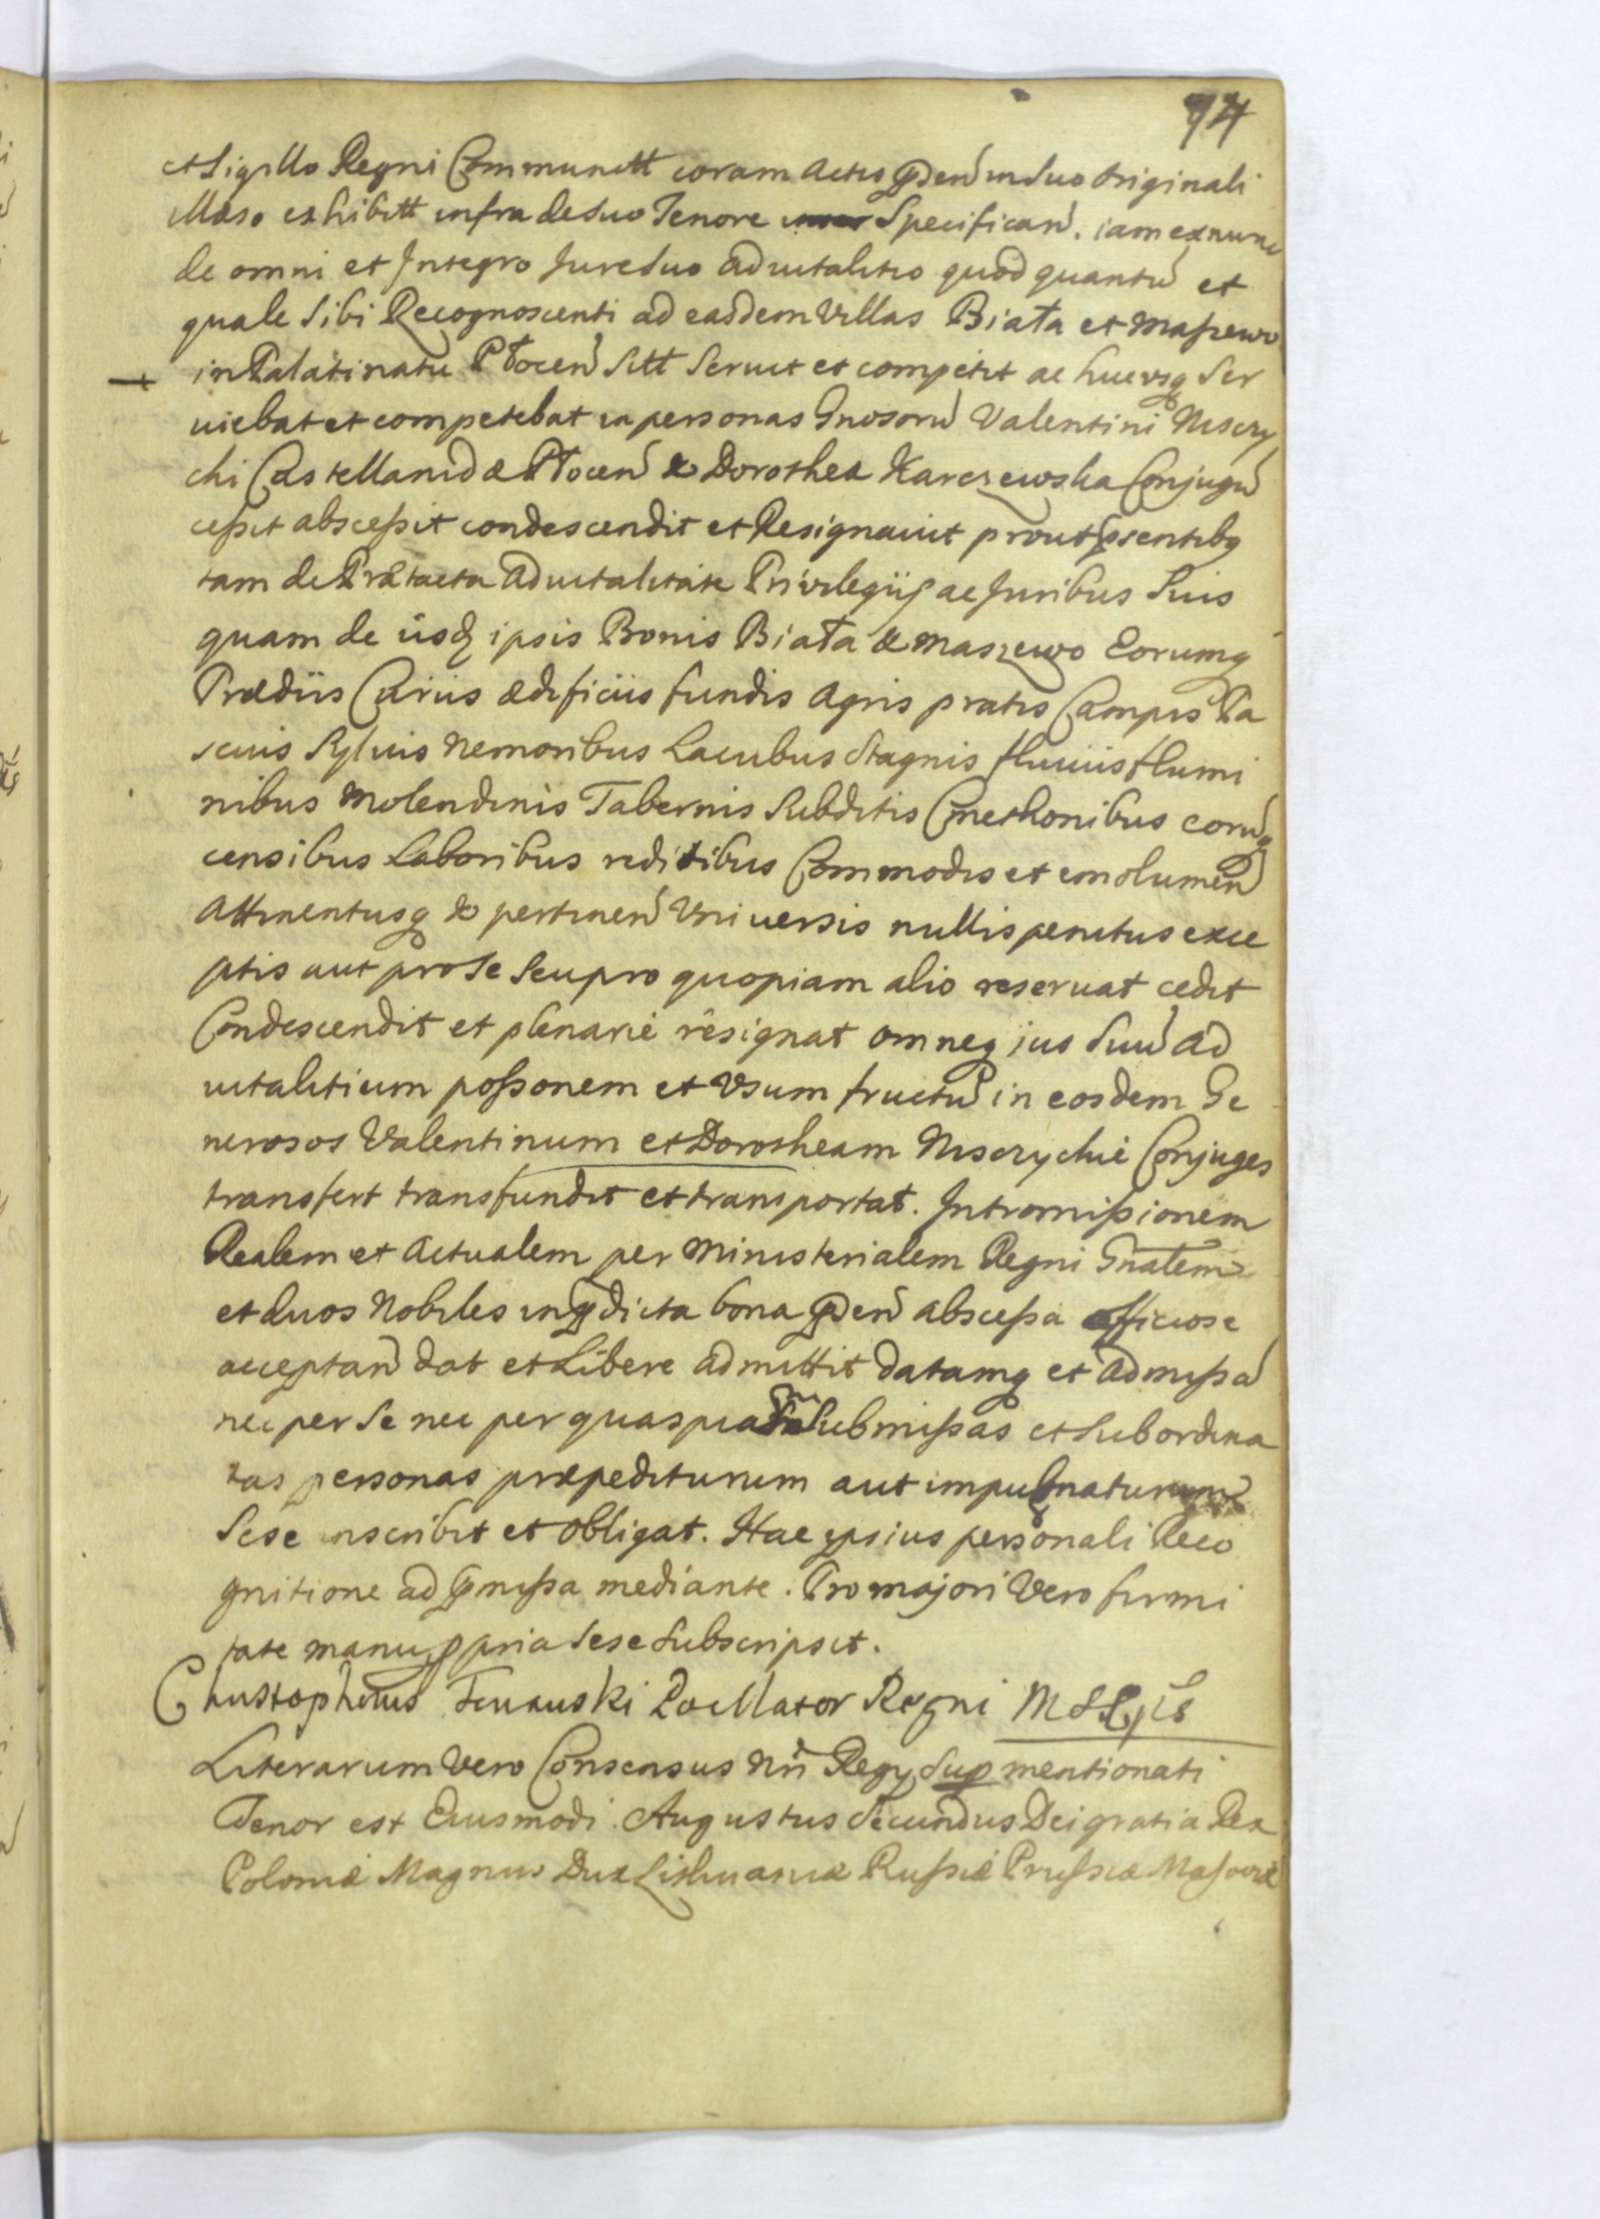 74
et Sigillo Regni Communitt coram Actis pnden in Suo Originali
illaeso exhibitt infra de Suo Tenore Specifican. iam ex nunc
de omni et Integro Jure Suo aduitalitio quod quantu et
quale Sibi Recognoscenti ad easdem Villas Biała et Maszewo
in Palatinatu Płocen Sitt Seruit et competit ac hucusq Ser
uiebat et competebat in personas Gnosoru Valentini Nisczy
chi Castellanidae Płocen & Dorothea Karczewska Conjugu
cessit abscessit condescendit et Resignauit prout psentibq
tam de Praetacta Aduitalitate Priuilegijs ac Juribus Suis
quam de iisdq ipsis Bonis Biała & Maszewo Eorumq
Praediis Curiis aedificiis fundis Agris pratis Campis Pa
scuis Syluis Nemoribus Lacubus Stagnis fluuiis flumi
nibus Molendinis Tabernis Subditis Cmethonibus eoruq
censibus Laboribus reditibus Commodis et emolumen
Attinentiisq & pertinen Vniuersis nullis penitus exce
ptis aut pro Se Seu pro quopiam alio reseruat cedit
Condescendit et plenarie resignat omneq ius Suu Ad
uitalitium possonem et Vsum fructu in eosdem Ge
nerosos Valentinum et Dorotheam Nisczychie Conjuges
transfert transfundit et transportat. Intromissionem
Realem et Actualem per Ministerialem Regni Gnalem
et duos Nobiles in pdicta bona pden abscessa officiose
acceptan dat et Libere admittit datamq et admissa
nec per Se nec per quaspiam Submissas et Subordina
tas personas praepediturum aut impugnaturum
Sese inscribit et obligat. Hac ipsius personali Reco
gnitione ad pmissa mediante. Pro majori Vero firmi
tate manu ppria Sese Subscripsit.
Pocillator Regni
Literarum Vero Consensus Nri Regij Sup mentionati
Tenor est Eiusmodi. Augustus Secundus Dei gratia Rex
Poloniae Magnus Dux Lithuaniae Russiae Prussiae Masoviae